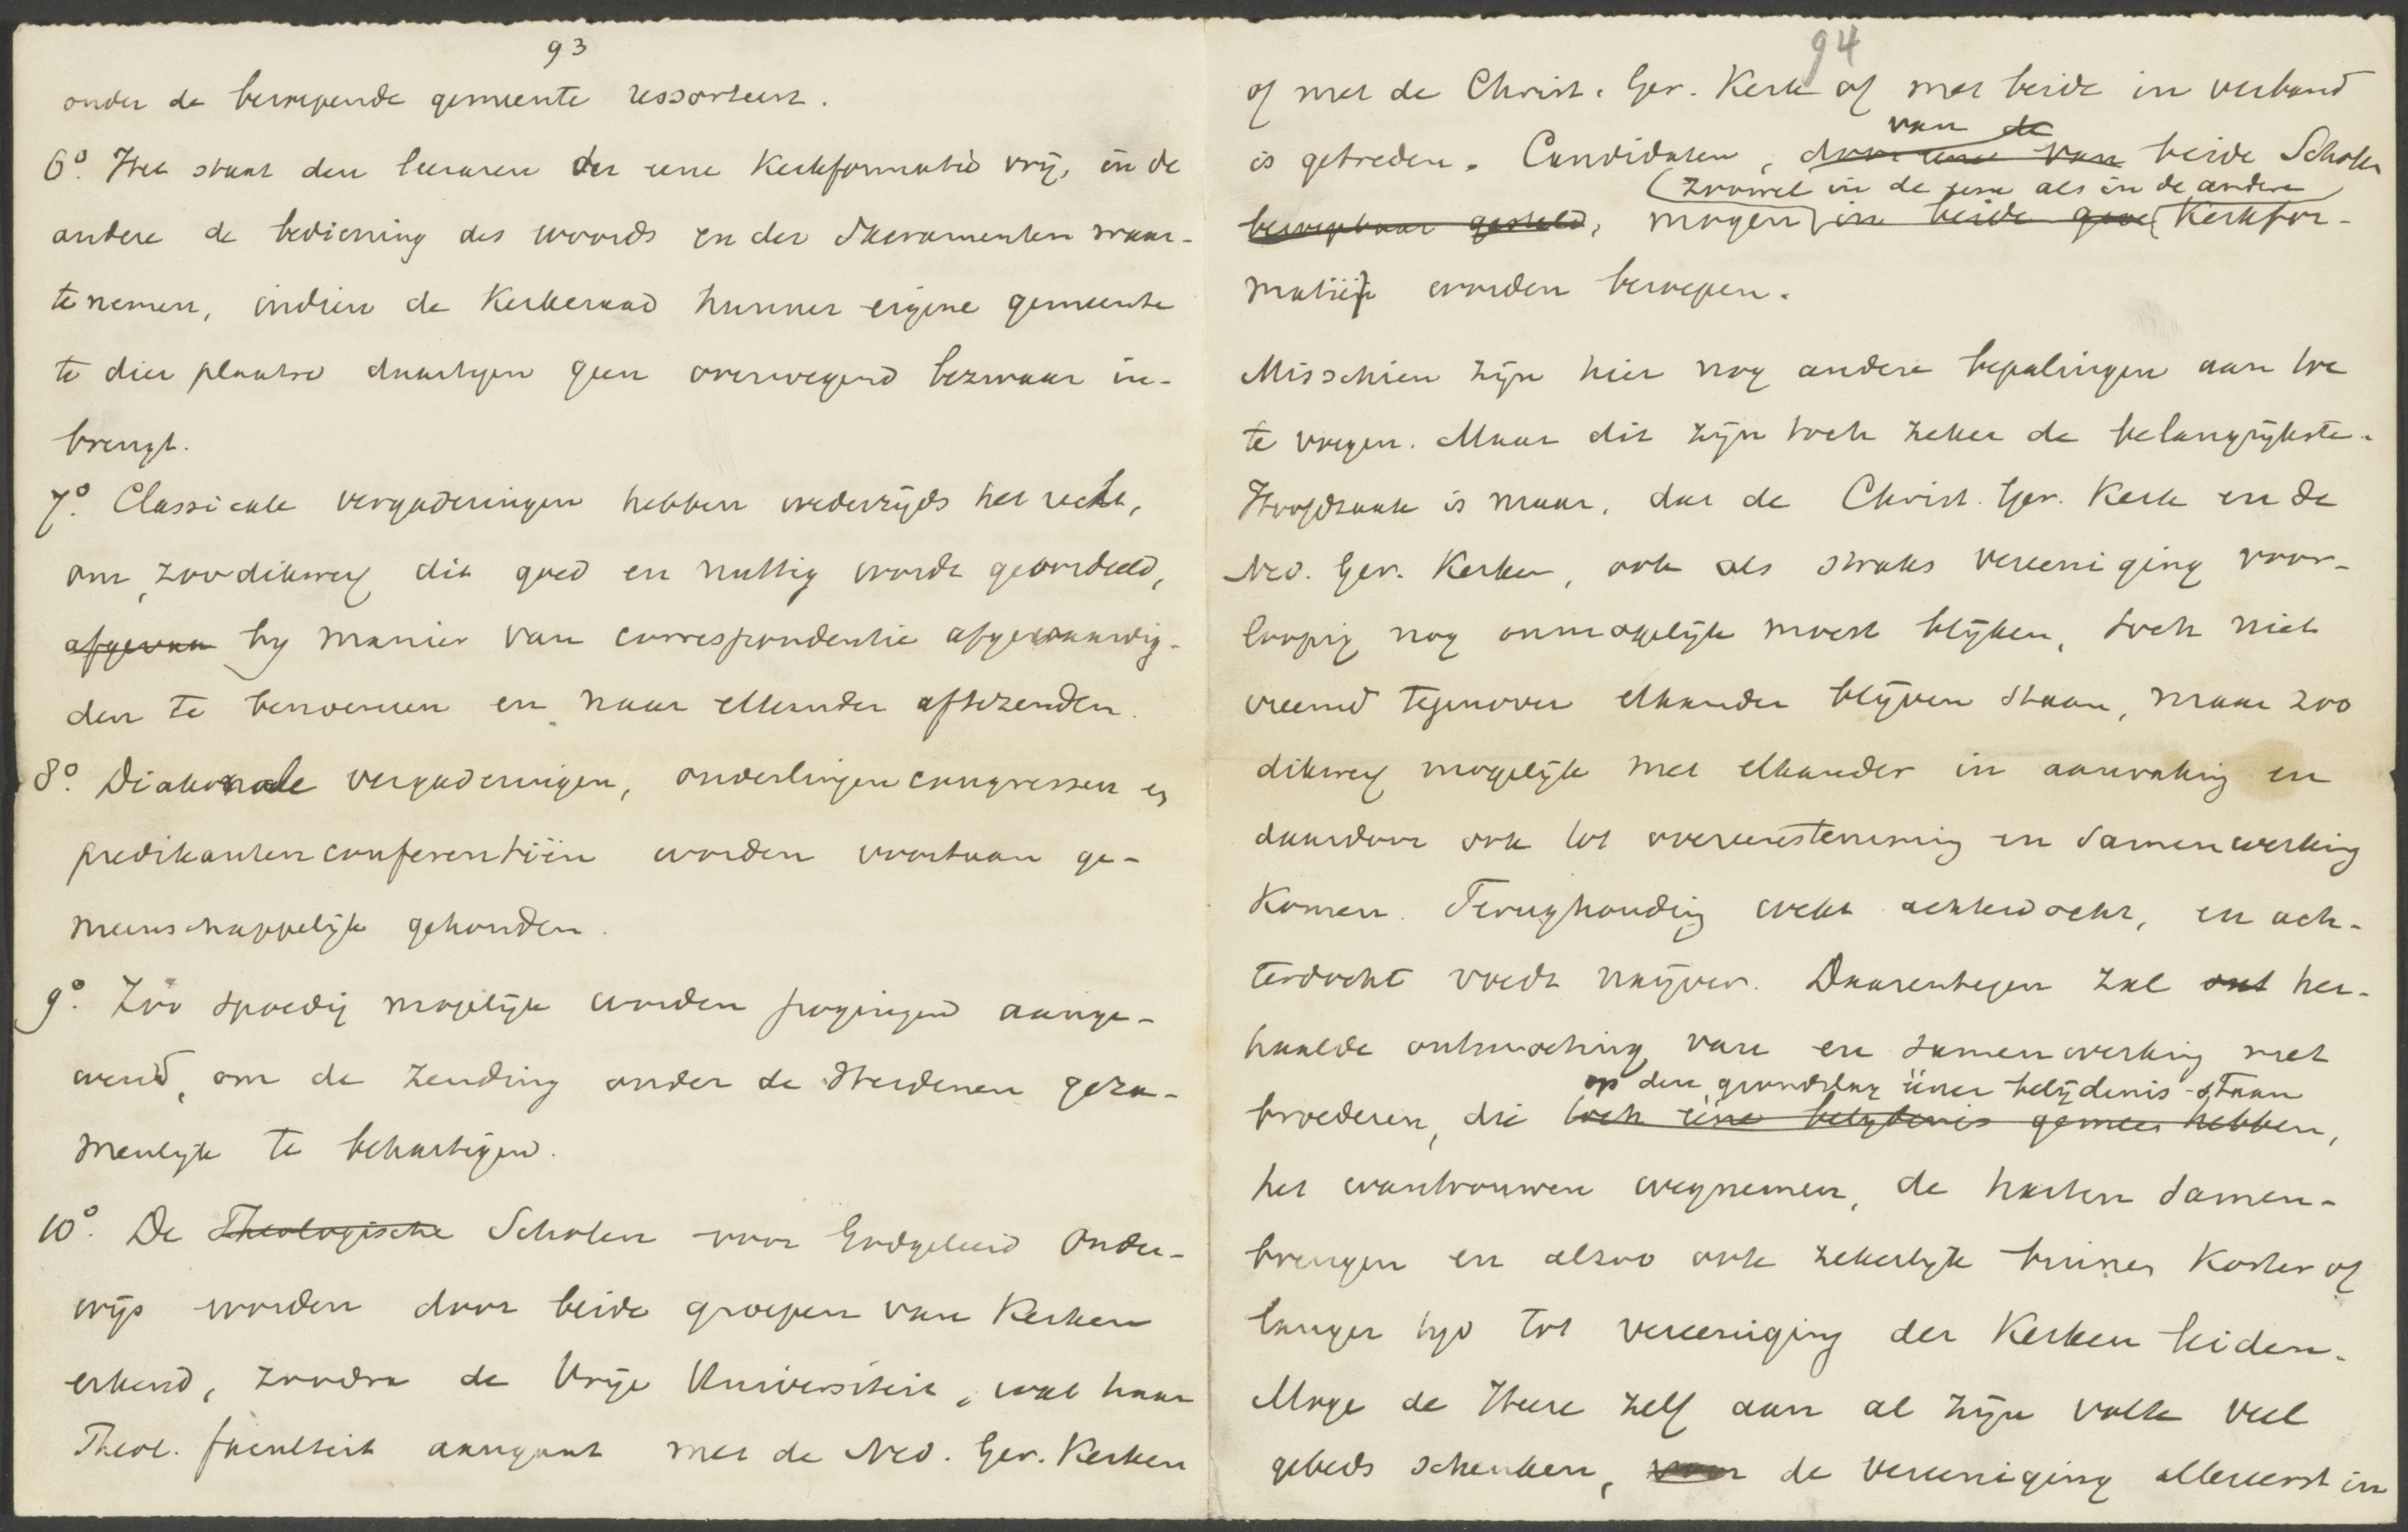 93
onder de beroepende gemeente ressorteert.
6o. Het staat den leeraren der eene Kerkformatie vrij, in de
andere de bediening des woords en der Sacramenten waar-
te nemen, indien de Kerkeraad hunner eigene gemeente
te dier plaatse daartegen geen overwegend bezwaar in-
brengt.
7o. Classicale vergaderingen hebben wederzijds het recht,
om, zoodikwerf dit goed en nuttig wordt geoordeeld,
afgevaa by manier van correspondentie afgevaardig-
den te benoemen en naar elkander aftezenden.
8o. Diakonale vergaderingen, ouderlingencongressen en
predikantenconferentiën worden voortaan ge-
meenschappelijk gehouden.
9o. Zóó spoedig mogelijk worden pogingen aange-
wend, om de Zending onder de Heidenen geza-
menlijk te behartigen.
10o. De Theologische Scholen voor Godgeleerd Onder-
wijs worden door beide groepen van Kerken
erkend, zoodra de Vrije Universiteit, wat haar
Theol. faculteit aangaat met de Ned. Ger. Kerken
94
of met de Christ. Ger. Kerk of met beide in verband
van de
is getreden. Candidaten, door eene van beide Scholen
(zoowel in de eene als in de andere
beroepbaar gesteld, mogen in beide gere Kerkfor-
matiën worden beroepen.
Misschien zijn hier nog andere bepalingen aan toe
te voegen. Maar dit zijn toch zeker de belangrijkste.
Hoofdzaak is maar, dat de Christ. Ger. Kerk en de
Ned. Ger. Kerken, ook als straks vereeniging voor-
loopig nog onmogelijk moest blijken, toch niet
vreemd tegenover elkander blijven staan, maar zoo
dikwerf mogelijk met elkander in aanraking en
daardoor ook tot overeenstemming en samenwerking
komen. Terughouding wekt achterdocht, en ach-
terdocht voedt naijver. Daarentegen zal ont her-
haalde ontmoeting van en samenwerking met
op den grondslag ééner belijdenis staan
broederen, die toch eene belydenis gemeen hebben,
het wantrouwen wegnemen, de harten samen-
brengen en alzoo ook zekerlijk binnen korter of
langer tijd tot vereeniging der Kerken leiden.
Moge de Heere zelf aan al zijn volk veel
gebeds schenken, voor de vereeniging allereerst in